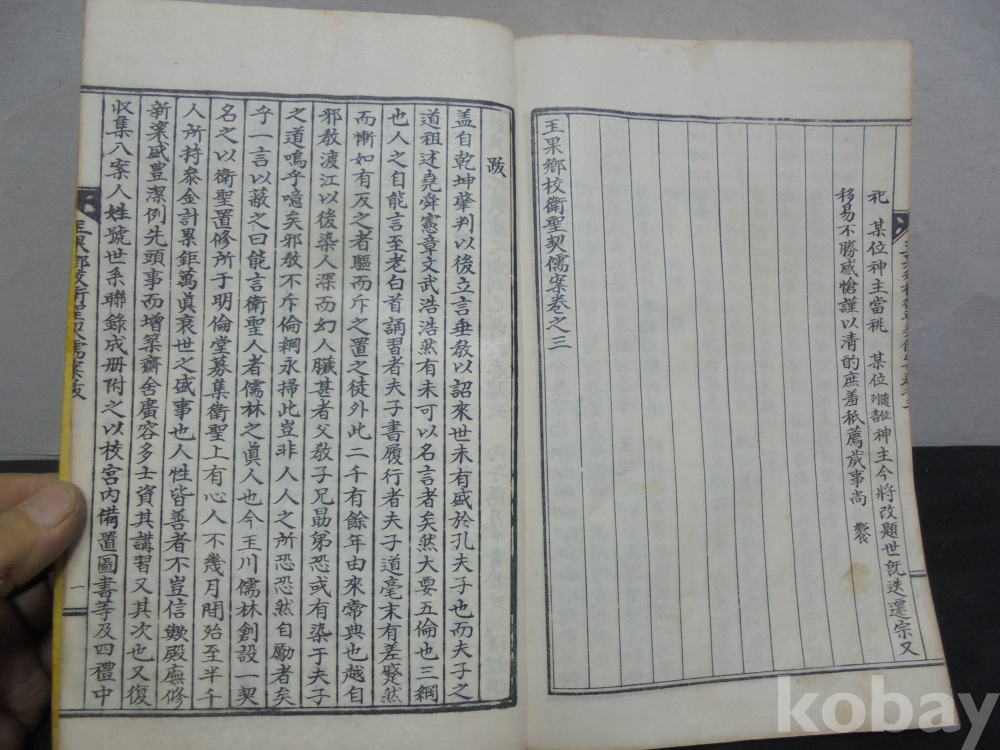 祀　某位神主當祧　某位隨位列書神主今將改題世旣迭遷宗又
移易不勝感愴謹以清酌庶羞祗薦歲事尚　饗
玉果鄕校衛聖契儒案卷之三
跋
盖自乾坤肇判以後立言垂敎以詔來世未有盛於孔夫子也而夫子之
道祖述堯舜憲章文武浩浩然有未可以名言者矣然大要五倫也三綱
也人之自能言至老白首誦習者夫子書履行者夫子道毫末有差蹙然
而慚如有反之者驅而斥之置之徒外此二千有餘年由來常典也越自
邪敎渡江以後染人深而幻人臟甚者父敎子兄勗弟恐或有染于夫子
之道嗚乎噫矣邪敎不斥倫綱永掃此豈非人人之所恐恐然自勵者矣
乎一言以蔽之曰能言衛聖人者儒林之眞人也今玉川儒林創設一契
名之以衛聖置修所于明倫堂募集衛聖上有心人不幾月間殆至半千
人所持叅金計累鉅萬眞衰世之盛事也人性皆善者不豈信歟殿廡修
新粢盛豊潔例先頭事而增築齋舍廣容多士資其講習又其次也又復
収集入案人姓號世系聯錄成册附之以校宮內備置圖書等及四禮中
玉果鄕校衛聖契儒案跋
一
kobay